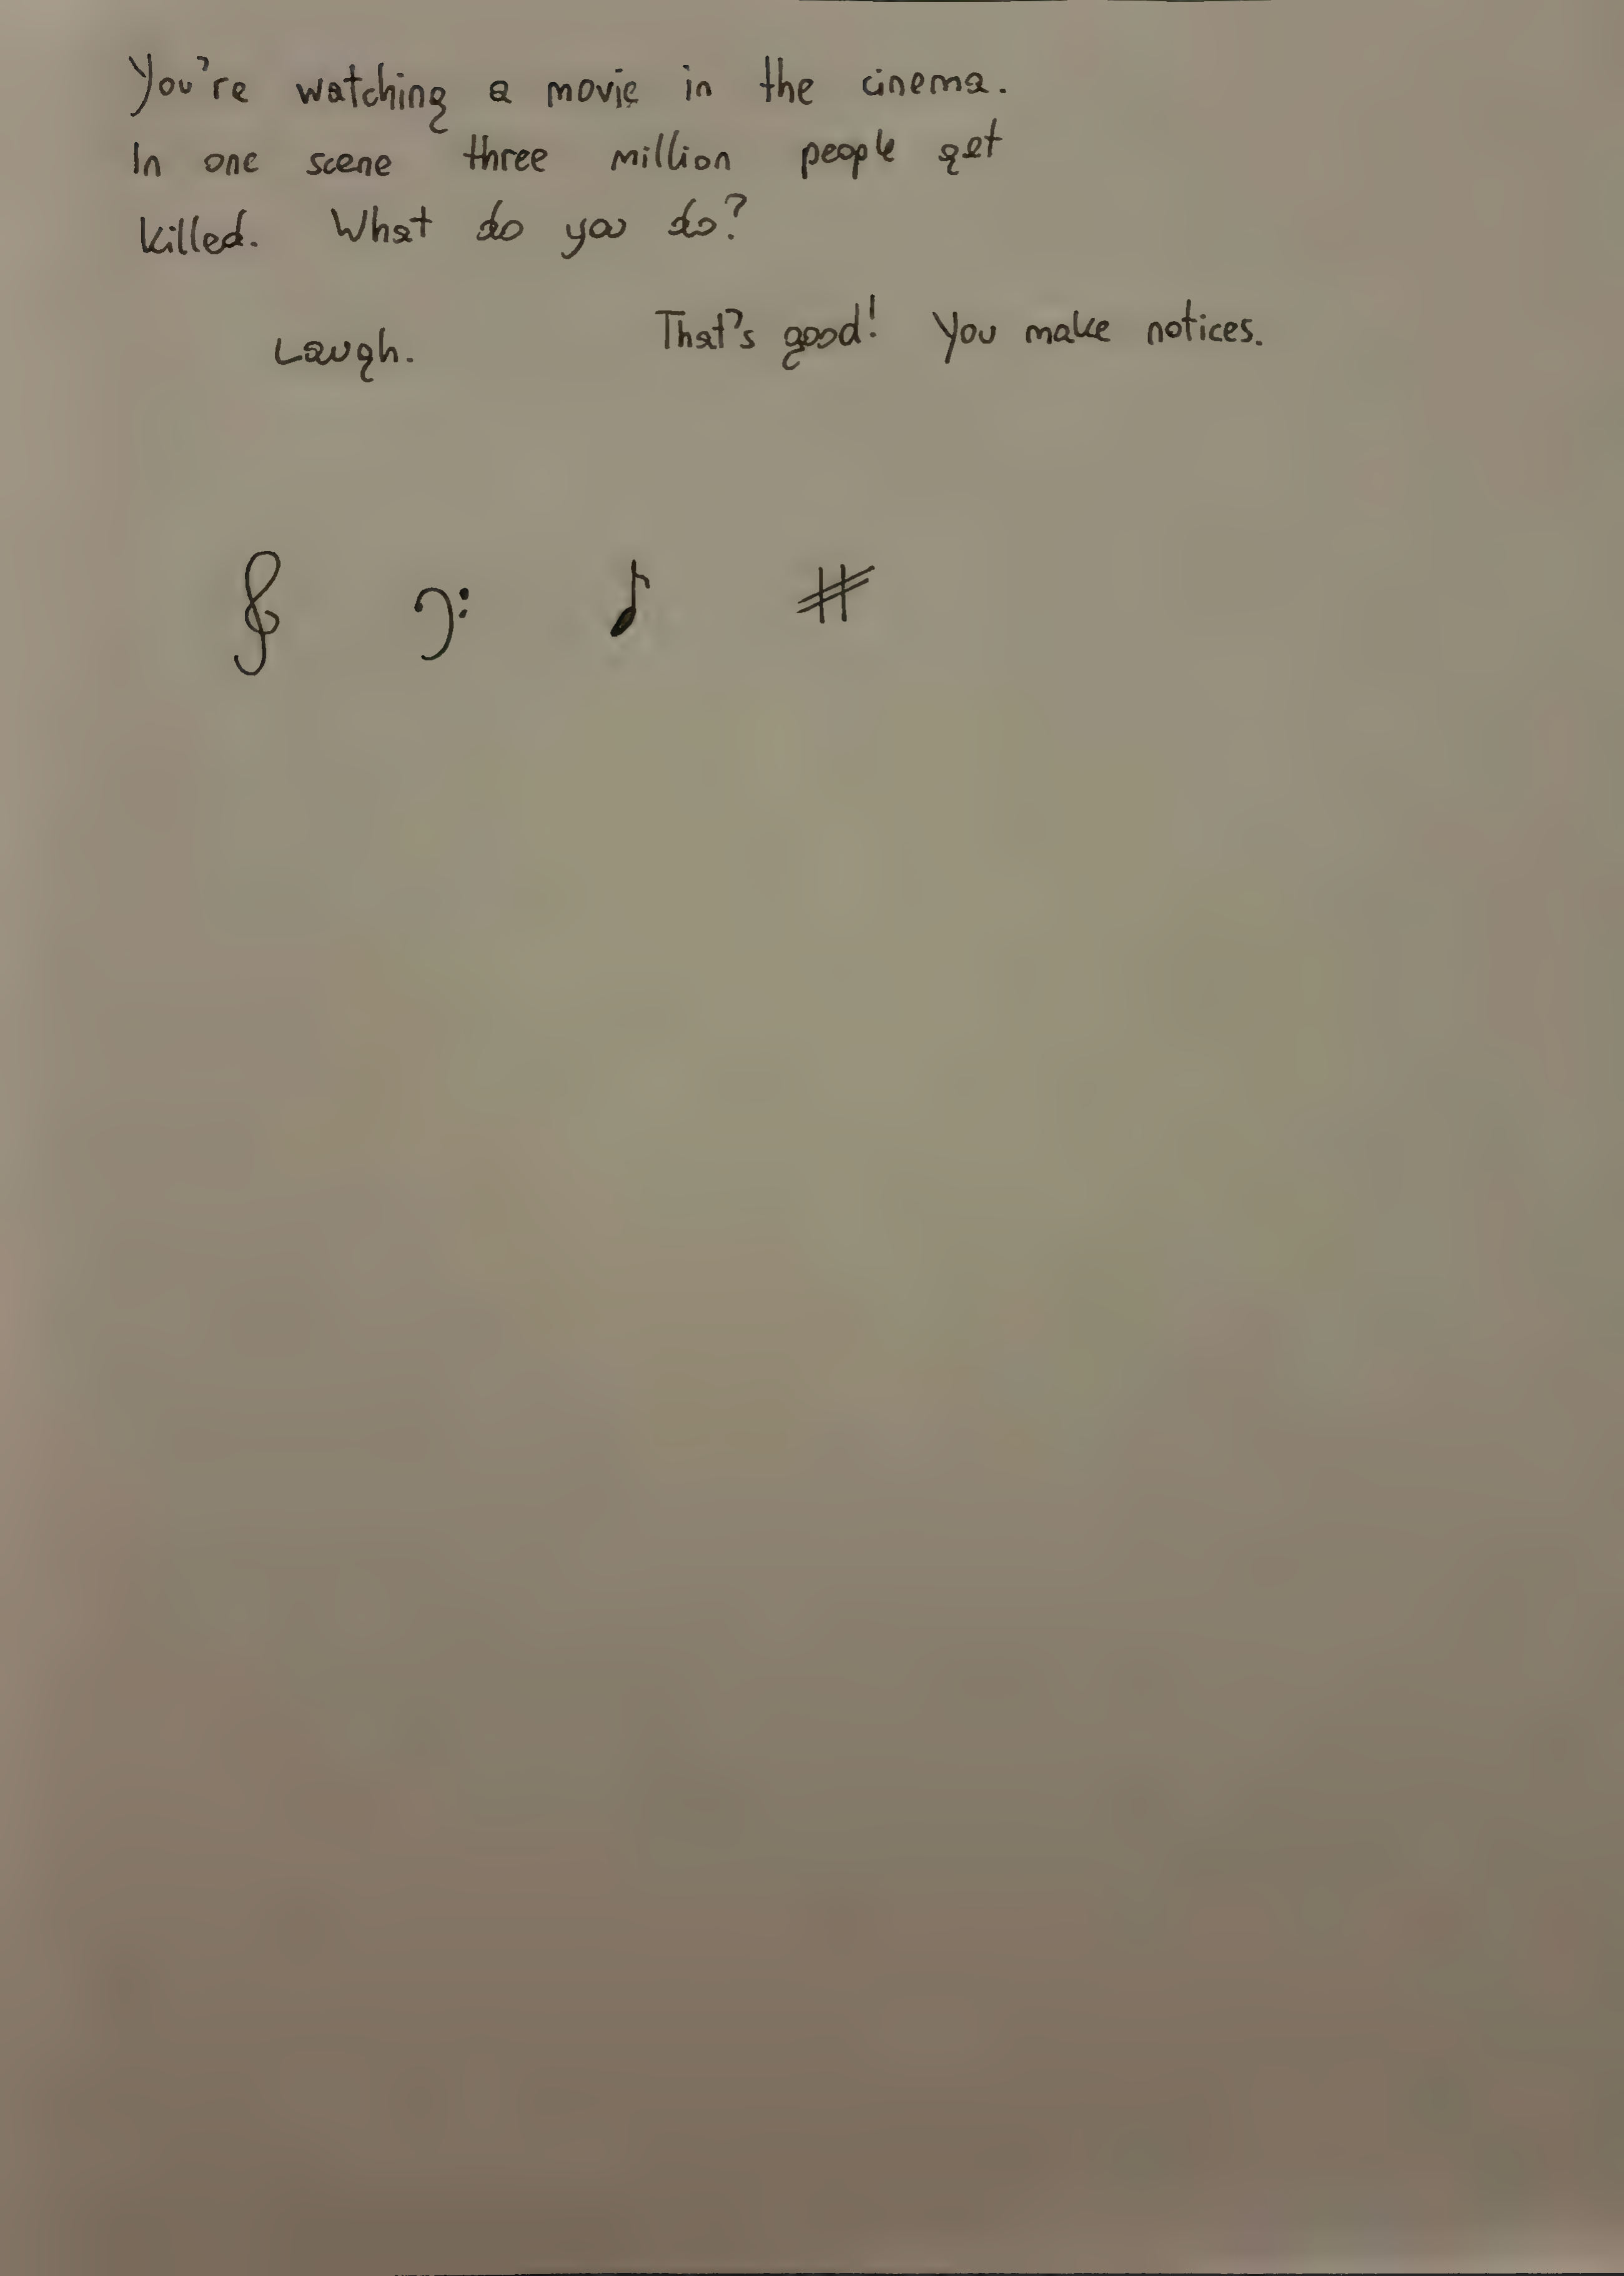 You're watching a movie in the cinema.
In one scene three million people get
killed. What do you do?
Laugh. That's good! You make notices.